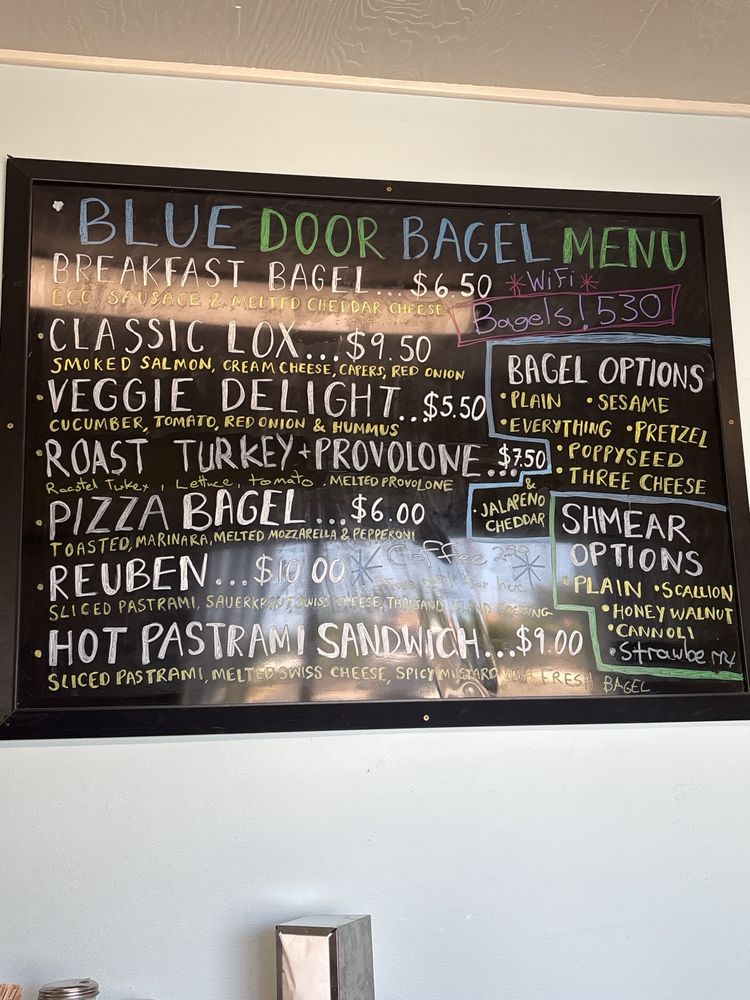 BLUE DOOR BAGEL MENU
BREAKFAST BAGEL...$6.50
EGG, SAUSAGE & MELTED CHEDDAR CHEESE
*WiFi*
Bagels!530
•CLASSIC LOX...$9.50
SMOKED SALMON, CREAM CHEESE, CAPERS, RED ONION
•VEGGIE DELIGHT..$5.50
CUCUMBER, TOMATO, RED ONION & HUMMUS
•ROAST TURKEY+PROVOLONE...$7.50
Roasted Turkey, Lettuce, tomato, MELTED PROVOLONE
•PIZZA BAGEL...$6.00
TOASTED, MARINARA, MELTED MOZZARELLA & PEPPERONI
•REUBEN...$10.00
*Coffee
SLICED PASTRAMI, SAUERKRAUT, SWISS CHEESE, THOUSAND ISLAND DRESSING
•HOT PASTRAMI SANDWICH...$9.00
SLICED PASTRAMI, MELTED SWISS CHEESE, SPICY MUSTARD FRESH BAGEL
BAGEL OPTIONS
•PLAIN •SESAME
•EVERYTHING •PRETZEL
•POPPYSEED
•THREE CHEESE
&
•JALAPENO
CHEDDAR
SHMEAR
OPTIONS
•PLAIN •SCALLION
•HONEY WALNUT
•CANNOLI
•Strawberry